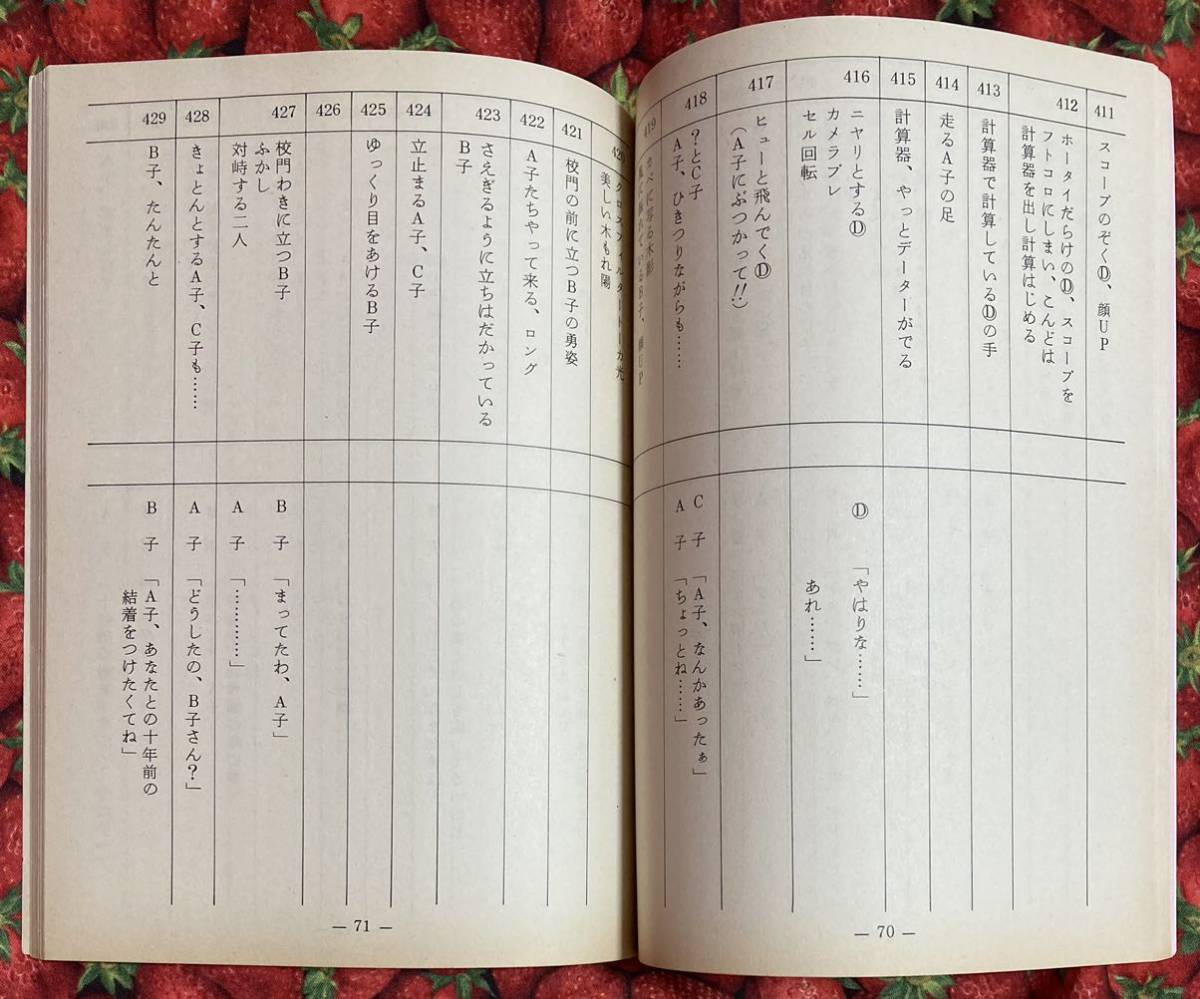 411
スコープのぞくⒹ、顔UP
412
ホータイだらけのⒹ、スコープを
フトコロにしまい、こんどは
計算器を出し計算はじめる
413
計算器で計算しているⒹの手
414
走るA子の足
415
計算器、やっとデーターがでる
416
ニヤリとするⒹ
カメラブレ
セル回転
Ⓓ 「やはりな……」
あれ……」
417
ヒューと飛んでくⒹ
(A子にぶつかって!!)
418
?とC子
A子、ひきつりながらも……
C子 「A子、なんかあったぁ」
A子 「ちょっとね……」
419
カベに写る木影
れているB子、顔UP
— 70 —
420
クロスフィルター
美しい木もれ陽
421
校門の前に立つB子の勇姿
422
A子たちやって来る、ロング
423
さえぎるように立ちはだかっている
B子
424
立止まるA子、C子
425
ゆっくり目をあけるB子
426
427
校門わきに立つB子
ふかし
対峙する二人
B子 「まってたわ、A子」
A子 「…………」
428
きょとんとするA子、C子も……
A子 「どうしたの、B子さん?」
429
B子、たんたんと
B子 「A子、あなたとの十年前の
結着をつけたくてね」
— 71 —